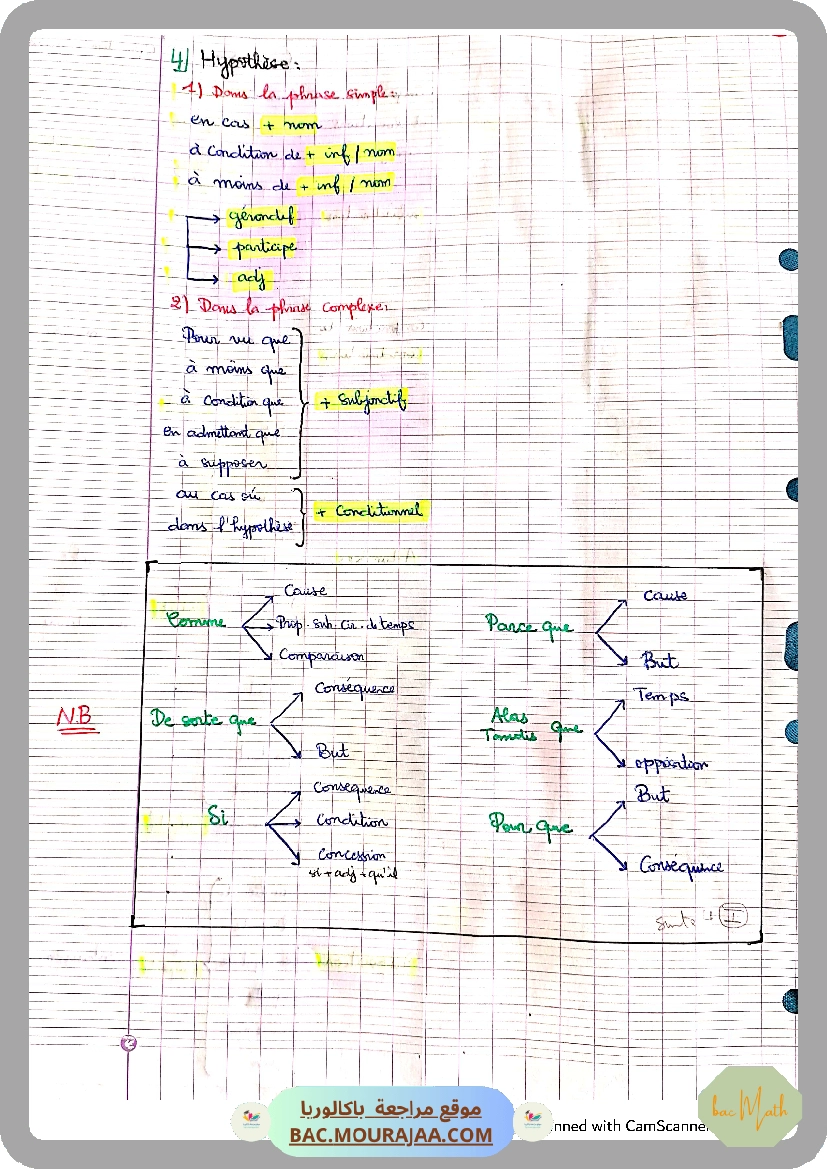 4) Hypothèse :
1) Dans la phrase simple :
en cas + nom
à condition de + inf / nom
à moins de + inf / nom
gérondif
participe
adj
2) Dans la phrase complexe :
Pour vu que
à moins que
à condition que
en admettant que
à supposer
+ Subjonctif
au cas où
dans l'hypothèse
+ Conditionnel
N.B
Comme
Cause
Prop. sub. cir. de temps
Comparaison
Parce que
Cause
But
De sorte que
Conséquence
But
Alors
Tandis que
Temps
opposition
Si
Conséquence
Condition
Concession
si + adj + qu'il
Pour que
But
Conséquence
موقع مراجعة باكالوريا
BAC.MOURAJAA.COM
nned with CamScanner
bac Math